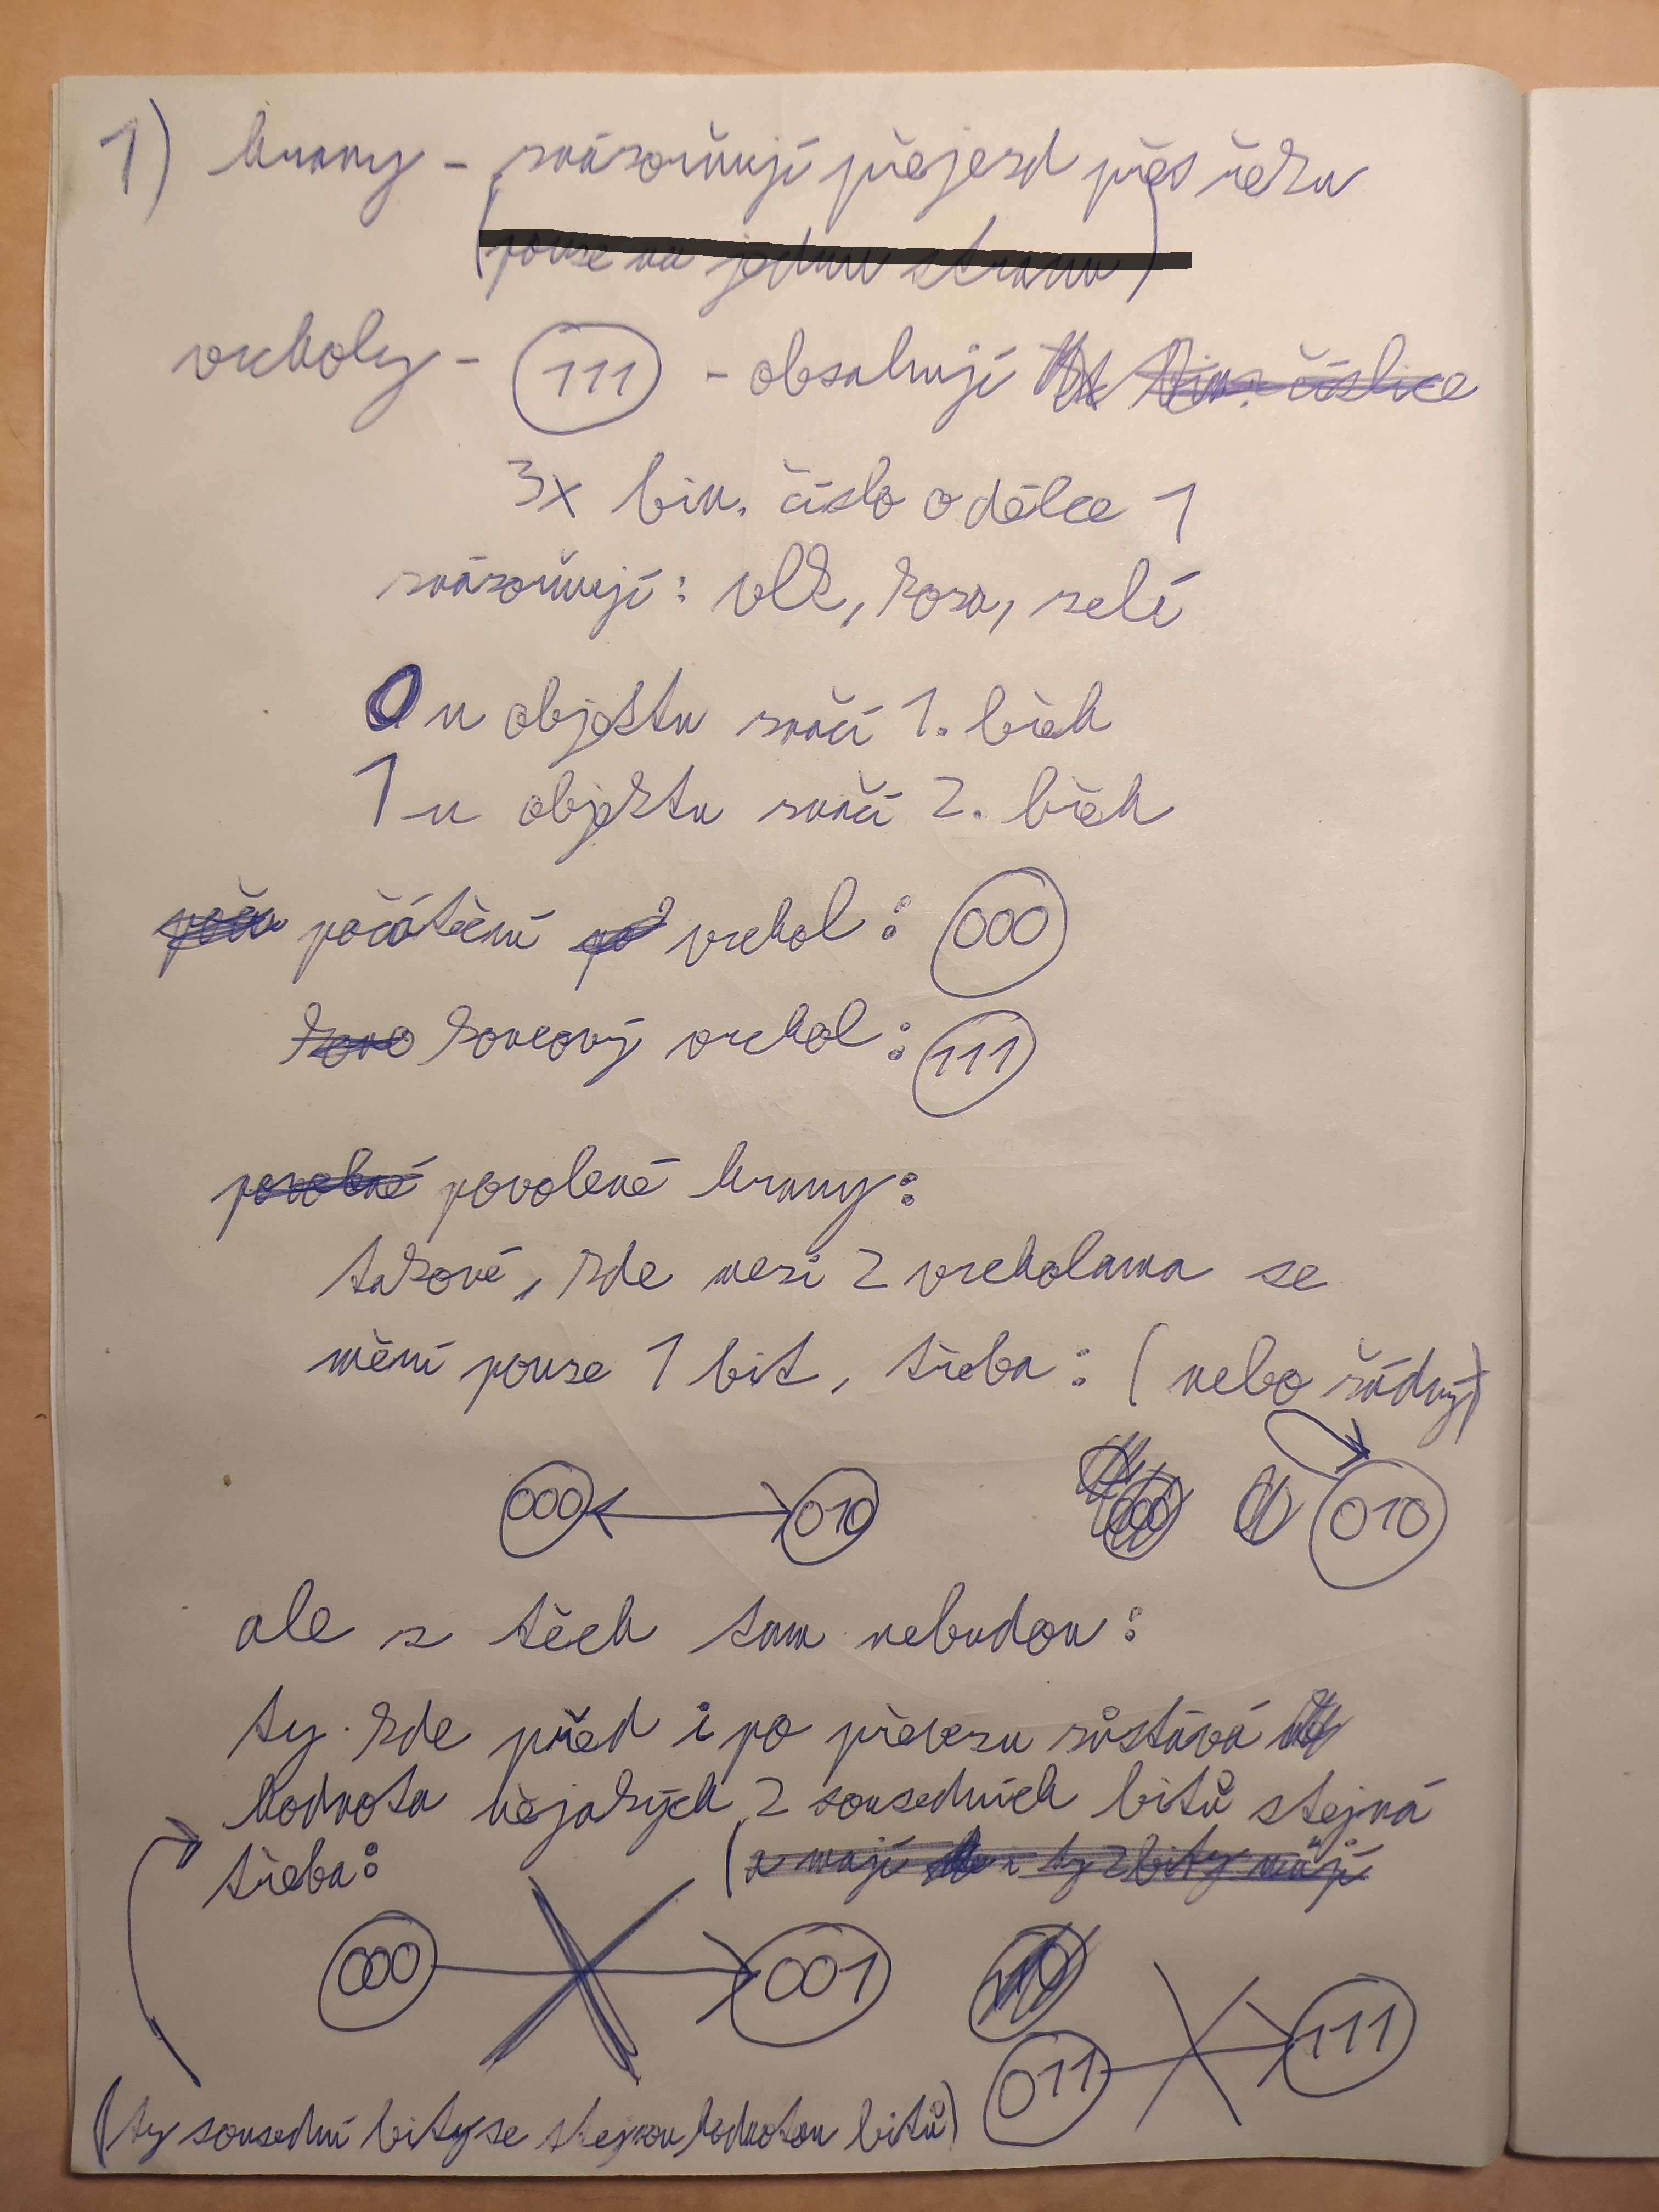 1) hrany - znázorňují přejezd přes řeku
(pouze na jednu stranu)
vrcholy - 111 - obsahují bin. číslice
3x bin. číslo o délce 1
znázorňují: vlk, koza, zelí
0 u objektu značí 1. břeh
1 u objektu značí 2. břeh
poča počáteční vrchol: 000
kono koncový vrchol: 111
povolné povolené hrany:
takové, kde mezi 2 vrcholama se
mění pouze 1 bit, třeba: (nebo žádný)
000 010 010
ale z těch tam nebudou:
ty kde před i po převozu zůstává
hodnota nějakých 2 sousedních bitů stejná
třeba: (a mají i ty 2 bity mají
000 001
011 111
(ty sousední bity se stejnou hodnotou bitů)